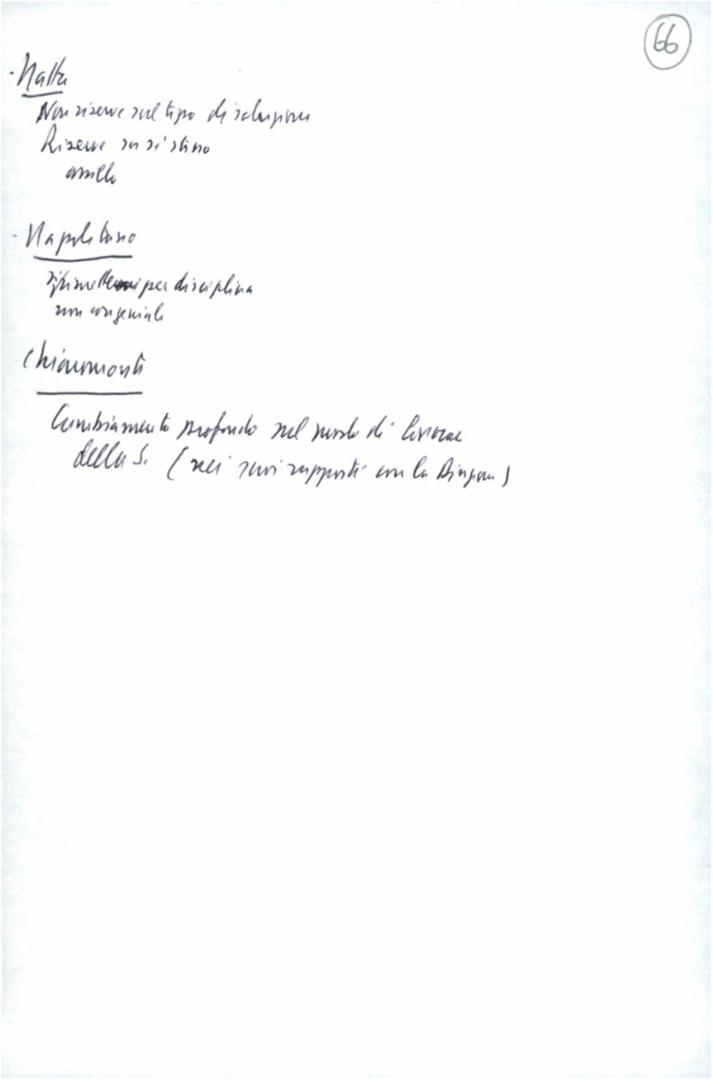 66
· Natta
Non riserve sul tipo di soluzione
Riserve su se stesso
anello
· Napolitano
per disciplina
non congeniale
Chiaromonte
Cambiamento profondo nel modo di lavorare
della S. (nei suoi rapporti con la Direzione)